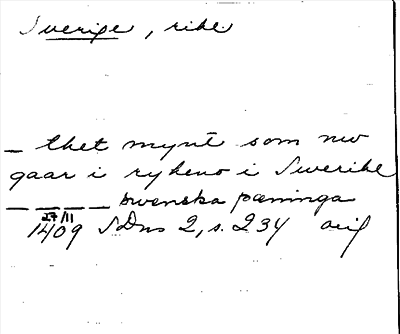 Swerige, rike
_ thet mynt som nw
gaar i rykeno i Swerike
_ _ _ _ swenska pæninga
27/11
1409 SDns 2, s. 234 orig